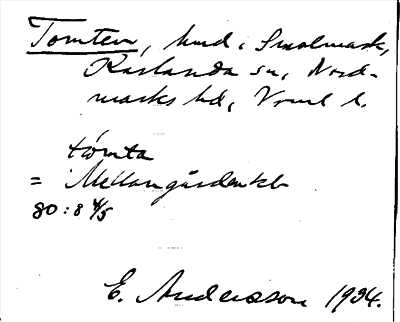 Tomten, hmd i Smolmark,
Karlanda sn, Nord-
marks hd, Vrml l.
tomta
= Mellangården kb
80:8 4/5
E. Andersson 1934.